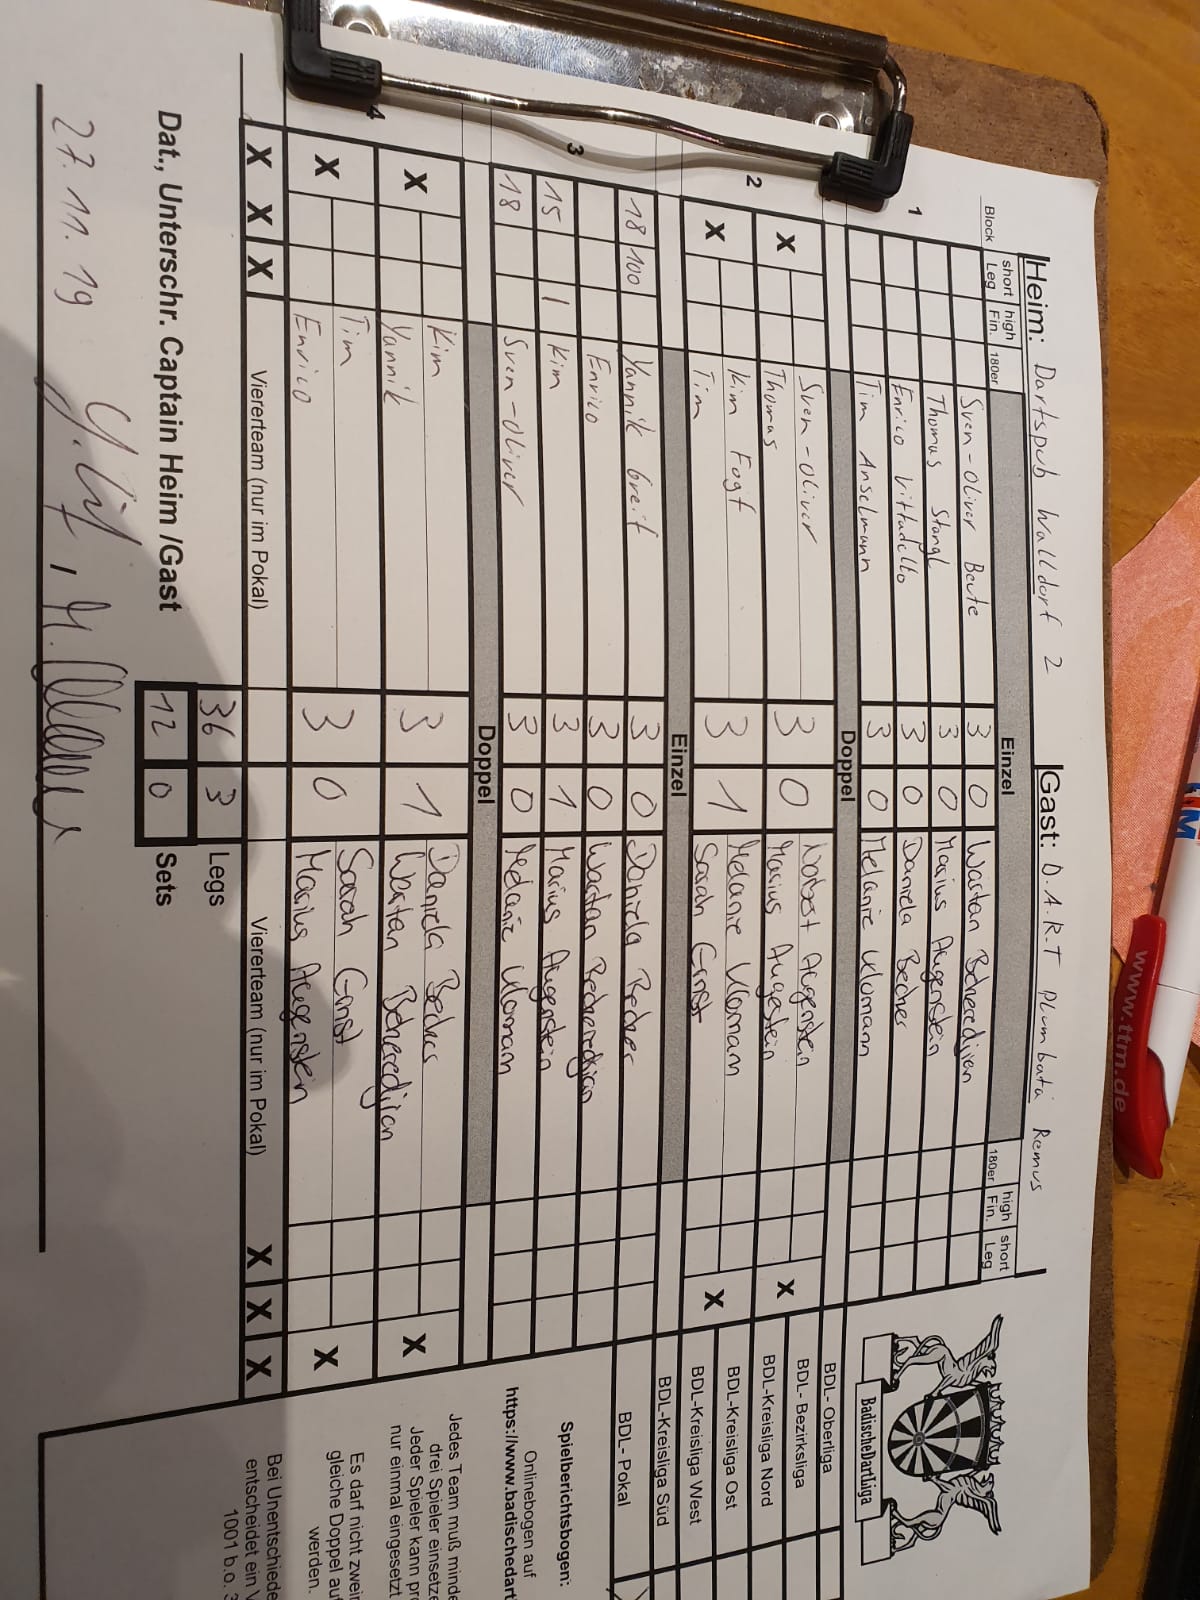 Heim: Dartspub Walldorf 2 Gast: D.A.R.T Plumbata Remus
Block short Leg high Fin. 180er Einzel 180er high Fin. short Leg
1
Sven-Oliver Beute 3 0 Wartan Bcheredjian
Thomas Stangl 3 0 Marius Augenstein
Enrico Vittadello 3 0 Daniela Becher
Tim Anselmann 3 0 Melanie Klomann
Doppel
2
X Sven-Oliver 3 0 Norbert Augenstein X
Thomas Marius Augestein
X Kim Fogt 3 1 Melanie Klomann X
Tim Sarah Ernst
Einzel
3
18 100 Yannik Breit 3 0 Daniela Becher
Enrico 3 0 Wartan Bcheredjian
15 1 Kim 3 1 Marius Augenstein
18 Sven-Oliver 3 0 Melanie Klomann
Doppel
4
X Kim 3 1 Daniela X
Yannik Wartan Bcheredjian
X Tim 3 0 Sarah Ernst X
Enrico Marius Augenstein
X X X Viererteam (nur im Pokal) Viererteam (nur im Pokal) X X X
36 3 Legs
12 0 Sets
Dat., Unterschr. Captain Heim /Gast
27.11.19
BadischeDartLiga
BDL- Oberliga
BDL- Bezirksliga
BDL-Kreisliga Nord
BDL-Kreisliga Ost
BDL-Kreisliga West
BDL-Kreisliga Süd
BDL- Pokal
Spielberichtsbogen:
Onlinebogen auf
https://www.badischedart
Jedes Team muß minde
drei Spieler einsetze
Jeder Spieler kann pro
nur einmal eingesetzt
Es darf nicht zweim
gleiche Doppel auf
werden.
Bei Unentschiede
entscheidet ein V
1001 b.o. 3
www.ttm.de